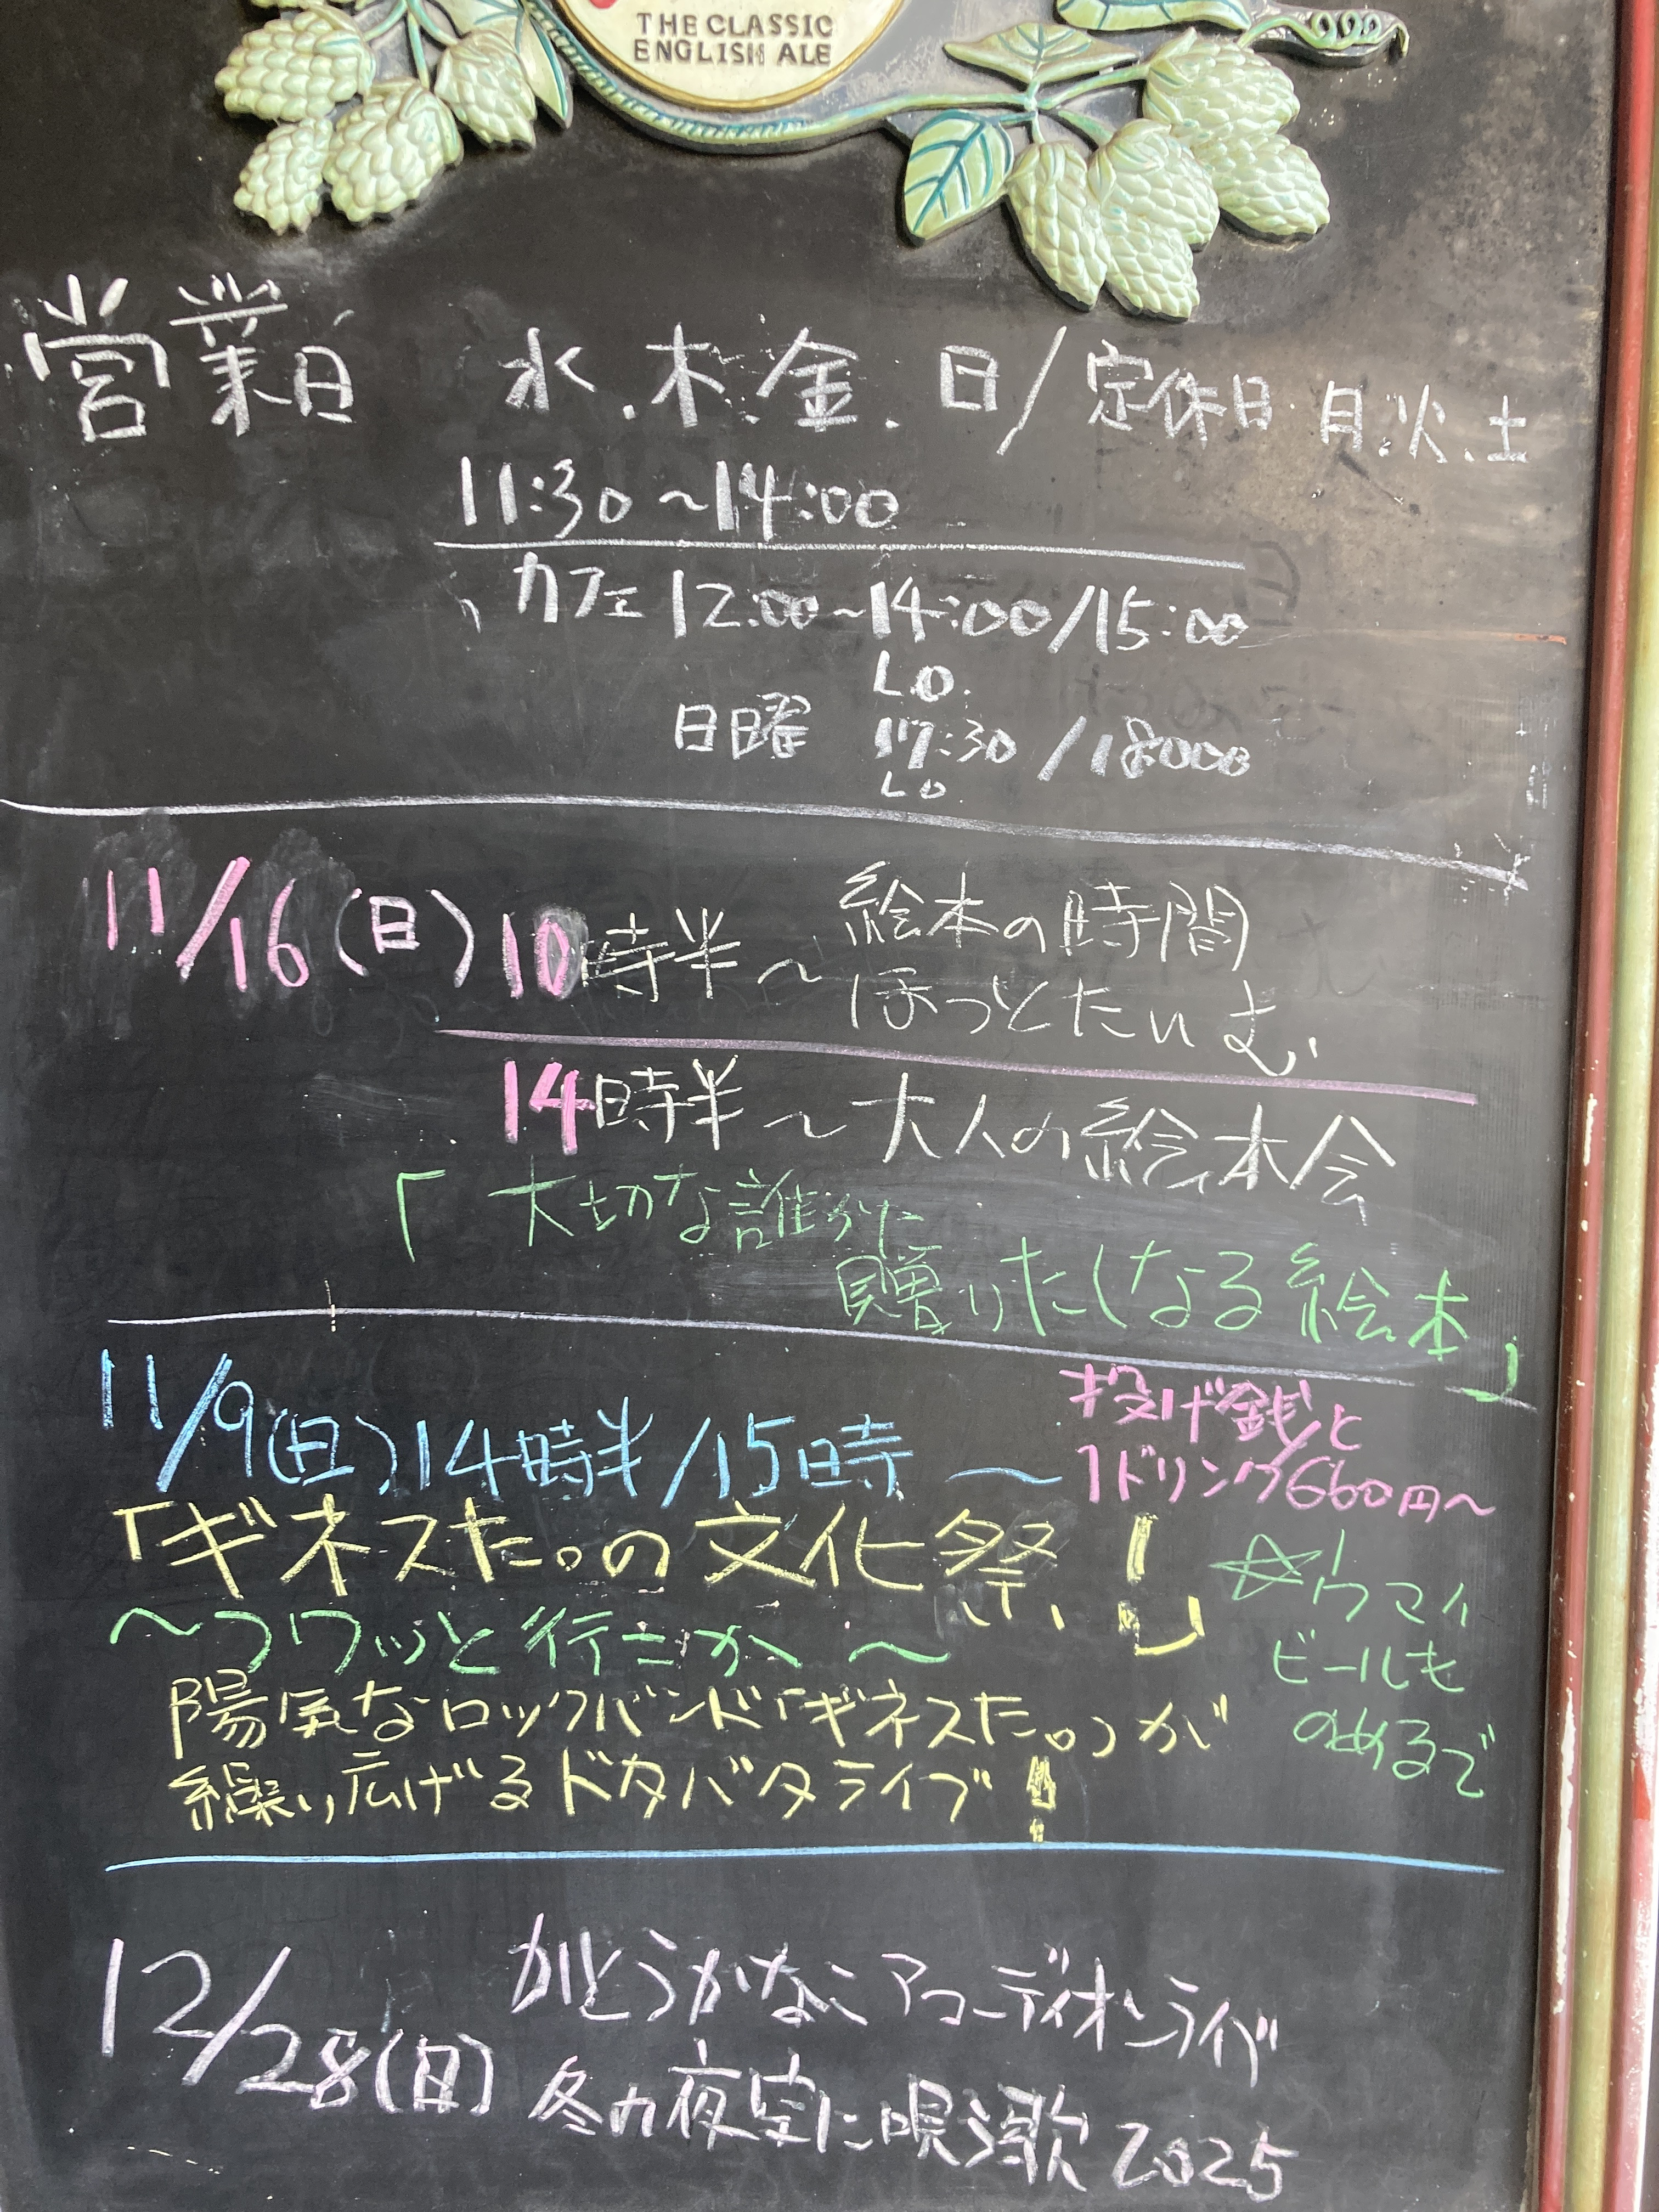 THE CLASSIC
ENGLISH ALE
営業日 水.木.金.日/定休日.月.火.土
11:30〜14:00
カフェ12:00〜14:00/15:00
L.O.
日曜 17:30/18000
L.O.
11/16(日)10時半〜絵本の時間
ほっとたいむ
14時半〜大人の絵本会
「大切な誰かに
贈りたくなる絵本」
11/9(日)14時半/15時〜
投げ銭と
1ドリンク660円〜
「ギネスた。の文化祭!」
〜フワッと行こか〜
☆ウマイ
ビールも
のめるで
陽気なロックバンド「ギネスた。」が
繰り広げるドタバタライブ!
12/28(日) かとうかなこアコーディオンライヴ
冬の夜空に唄う歌2025